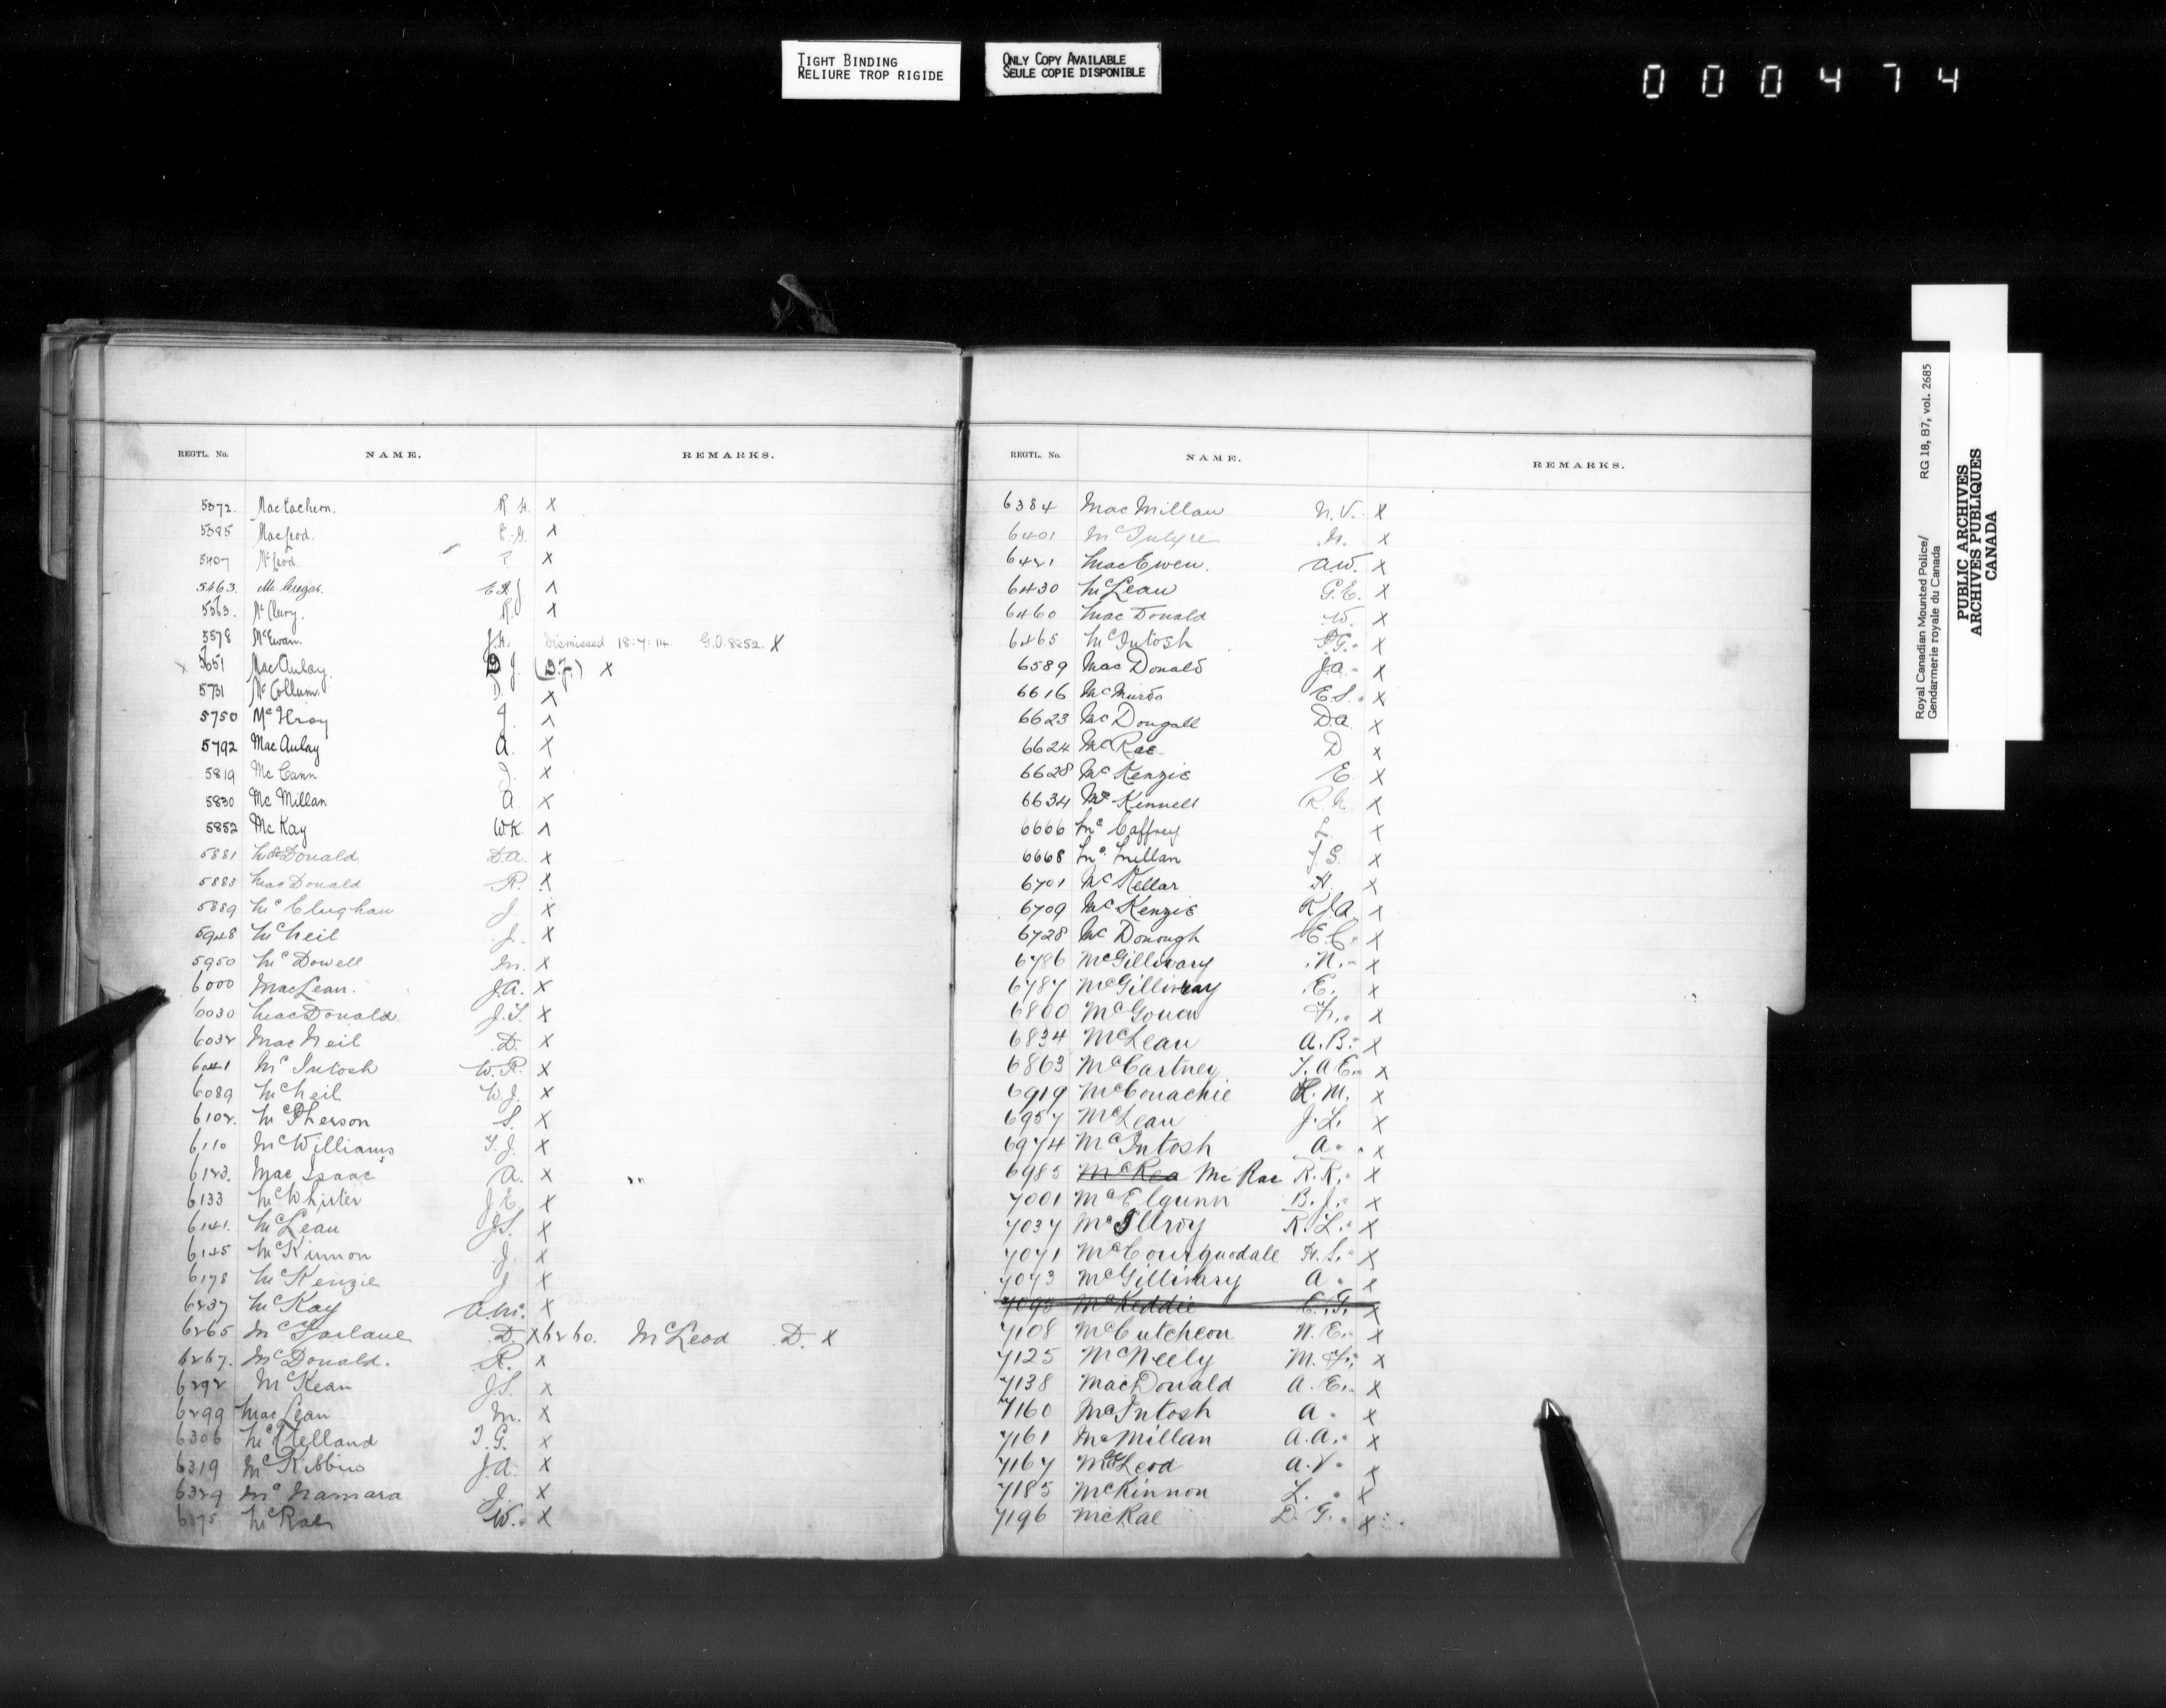 TIGHT BINDING
RELIURE TROP RIGIDE
ONLY COPY AVAILABLE
SEULE COPIE DISPONIBLE
000474
REGTL. No. NAME. REMARKS.
5372. MacEachern. R. H. X
5385 MacLeod. E. G. X
5407 McLeod. X
5463. McGregor. X
5563. McClevry. R. X
5578 McEwan. J.H. Dismissed 18:7:14 G.O. 8252. X
X 5651 MacAulay. D J. (D.J.) X
5731 McCollum. D. X
5750 McIlroy J. X
5792 MacAulay A. X
5819 McCann J. X
5830 McMillan A. X
5852 McKay W.K. X
5881 McDonald D.A. X
5883 MacDonald R. X
5889 McClughan J. X
5948 McNeil J. X
5950 McDowell M. X
6000 MacLean. J.A. X
6030 MacDonald J.T. X
6032 MacNeil D. X
6041 McIntosh W.R. X
6089 McNeil W.J. X
6102. McPherson S. X
6110 McWilliams T.J. X
6123. MacIsaac A. X
6133 McWhirter J.E. X
6141. McLean J.S. X
6145 McKinnon J. X
6178 McKenzie J X
6237 McKay A.M. X
6265 McFarlane D. X 6260. McLeod D. X
6267. McDonald. R. X
6292 McKean J.S. X
6299 MacLean M. X
6306 McClelland T.G. X
6319 McKibbin J.A. X
6329 McNamara J. X
6375 McRae W. X
REGTL. No. NAME. REMARKS.
6384 MacMillan N.V. X
6401 McIntyre N. X
6421 MacEwen. A.W. X
6430 McLean G.E. X
6460 MacDonald W. X
6465 McIntosh P.G. X
6589 MacDonald J.A. X
6616 McMurdo E.S. X
6623 McDougall D.A. X
6624 McRae D X
6628 McKenzie E X
6634 McKennell R.N. X
6666 McCaffrey L. X
6668 McMillan J.G. X
6701 McKellar H. X
6709 McKenzie R.J.A. X
6728 McDonough E.C. X
6786 McGillivary N. X
6787 McGillivray E. X
6800 McGowan F. X
6834 McLean A.B. X
6863 McCartney T.A.E. X
6919 McConachie R.M. X
6957 McLean J.L. X
6974 McIntosh A. X
6985 McRea McRae R.R. X
7001 McElgunn B.J. X
7037 McIlroy R.L. X
7071 McCourquodale H.S. X
7073 McGillivary A. X
7095 McKeddie E.G. X
7108 McCutcheon W.E. X
7125 McNeely M.F. X
7138 MacDonald A.E. X
7160 McIntosh A. X
7161 McMillan A.A. X
7167 McLeod A.V. X
7185 McKinnon L. X
7196 McRae D.G. X
Royal Canadian Mounted Police/ RG 18, B7, vol. 2685
Gendarmerie royale du Canada
PUBLIC ARCHIVES
ARCHIVES PUBLIQUES
CANADA